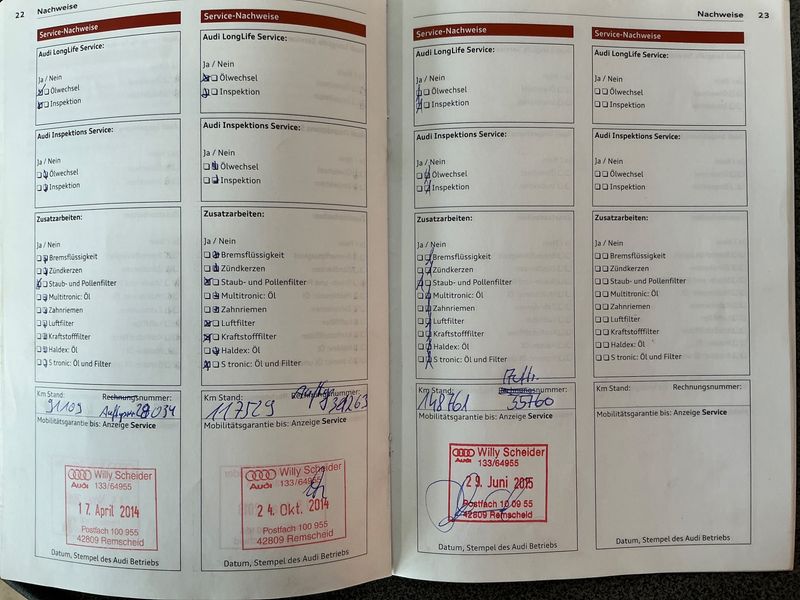 22 Nachweise
Service-Nachweise
Audi LongLife Service:
Ja / Nein
Ölwechsel
Inspektion
Audi Inspektions Service:
Ja / Nein
Ölwechsel
Inspektion
Zusatzarbeiten:
Ja / Nein
Bremsflüssigkeit
Zündkerzen
Staub- und Pollenfilter
Multitronic: Öl
Zahnriemen
Luftfilter
Kraftstofffilter
Haldex: Öl
S tronic: Öl und Filter
Km Stand: Rechnungsnummer:
91109
Mobilitätsgarantie bis: Anzeige Service
Willy Scheider
Audi 133/64955
17. April 2014
Postfach 100 955
42809 Remscheid
Datum, Stempel des Audi Betriebs
Service-Nachweise
Audi LongLife Service:
Ja / Nein
Ölwechsel
Inspektion
Audi Inspektions Service:
Ja / Nein
Ölwechsel
Inspektion
Zusatzarbeiten:
Ja / Nein
Bremsflüssigkeit
Zündkerzen
Staub- und Pollenfilter
Multitronic: Öl
Zahnriemen
Luftfilter
Kraftstofffilter
Haldex: Öl
S tronic: Öl und Filter
Km Stand: Rechnungsnummer:
117529 39263
Mobilitätsgarantie bis: Anzeige Service
Willy Scheider
Audi 133/64955
24. Okt. 2014
Postfach 100 955
42809 Remscheid
Datum, Stempel des Audi Betriebs
Nachweise 23
Service-Nachweise
Audi LongLife Service:
Ja / Nein
Ölwechsel
Inspektion
Audi Inspektions Service:
Ja / Nein
Ölwechsel
Inspektion
Zusatzarbeiten:
Ja / Nein
Bremsflüssigkeit
Zündkerzen
Staub- und Pollenfilter
Multitronic: Öl
Zahnriemen
Luftfilter
Kraftstofffilter
Haldex: Öl
S tronic: Öl und Filter
Km Stand: Rechnungsnummer:
148761 55760
Mobilitätsgarantie bis: Anzeige Service
Willy Scheider
Audi 133/64955
29. Juni 2015
Postfach 10 09 55
42809 Remscheid
Datum, Stempel des Audi Betriebs
Service-Nachweise
Audi LongLife Service:
Ja / Nein
Ölwechsel
Inspektion
Audi Inspektions Service:
Ja / Nein
Ölwechsel
Inspektion
Zusatzarbeiten:
Ja / Nein
Bremsflüssigkeit
Zündkerzen
Staub- und Pollenfilter
Multitronic: Öl
Zahnriemen
Luftfilter
Kraftstofffilter
Haldex: Öl
S tronic: Öl und Filter
Km Stand: Rechnungsnummer:
Mobilitätsgarantie bis: Anzeige Service
Datum, Stempel des Audi Betriebs